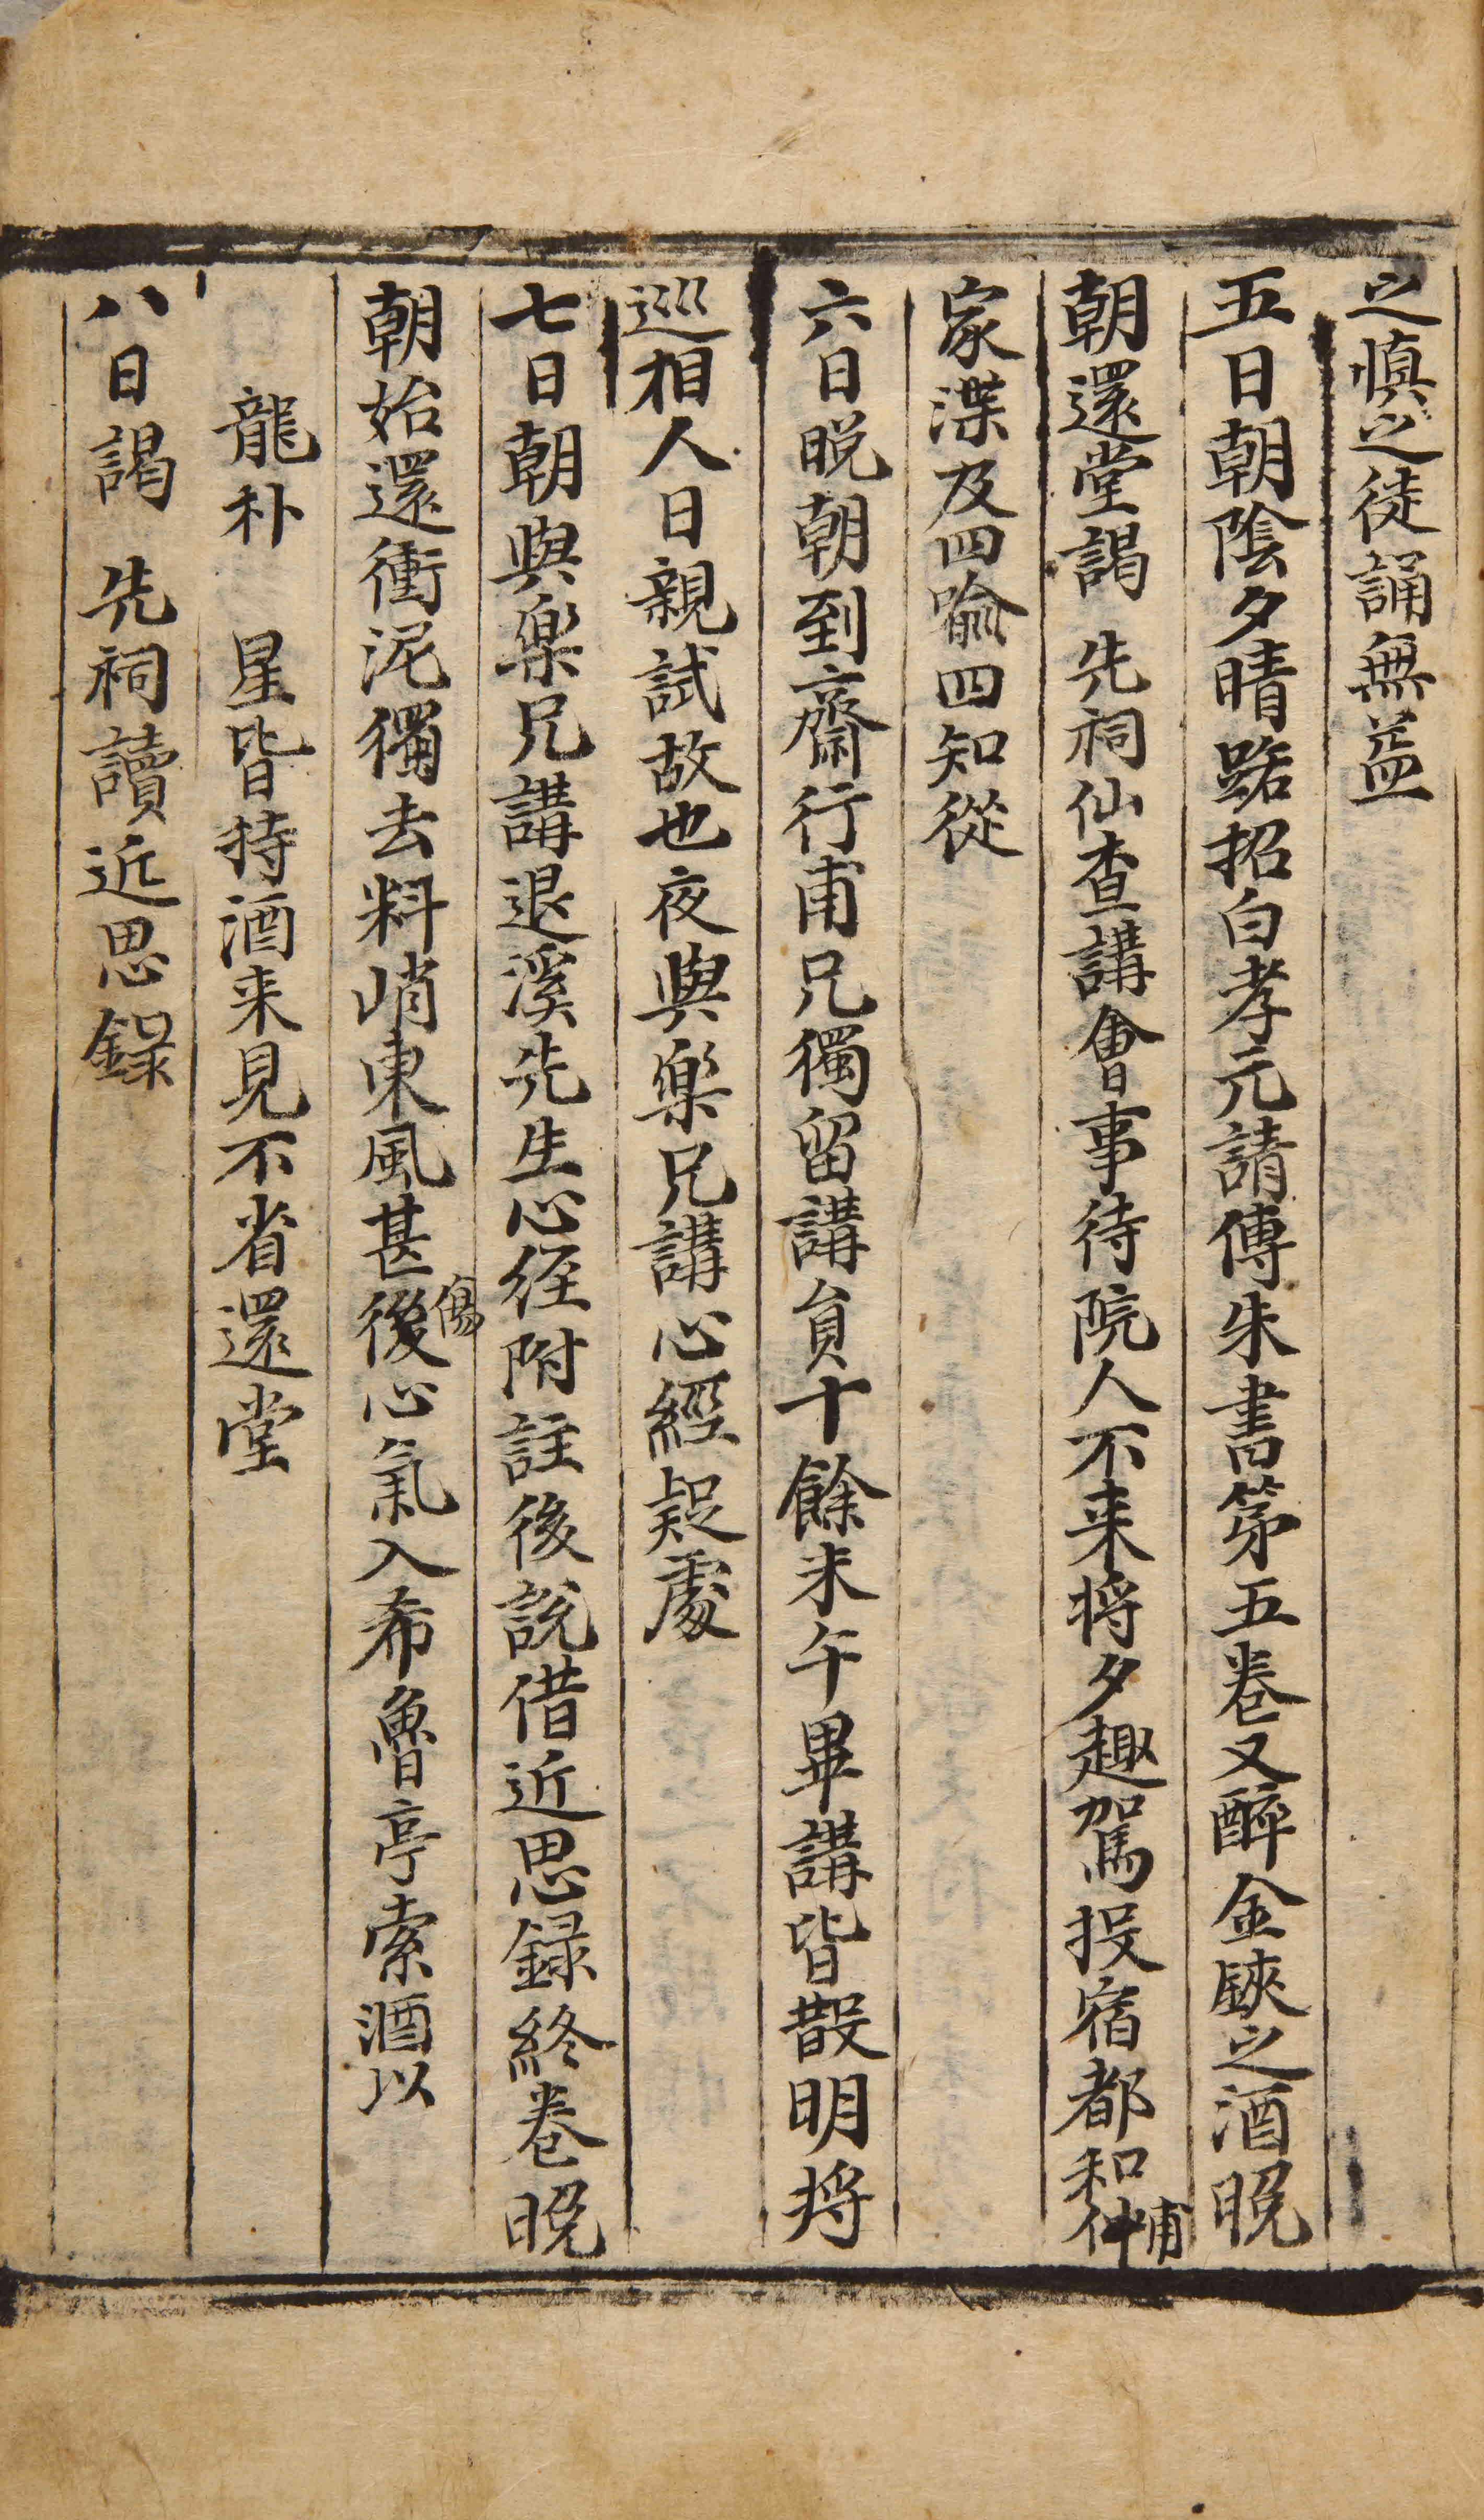 之慎之徒誦無益
五日朝陰夕晴踞招白孝元請傳朱書第五卷又醉金鋏之酒晩
朝還堂謁　先祠仙查講會事待院人不来将夕趣駕投宿都和仲甫
家渫及四喩四知從
六日晩朝到齋行甫兄獨留講員十餘未午畢講皆散明将
巡相人日親試故也夜與樂兄講心經疑處
七日朝與樂兄講退溪先生心経附註後說借近思録終卷晩
朝始還衝泥獨去料峭東風甚傷後心氣入希魯亭索酒以
龍朴　星皆持酒来見不省還堂
八日謁　先祠讀近思錄